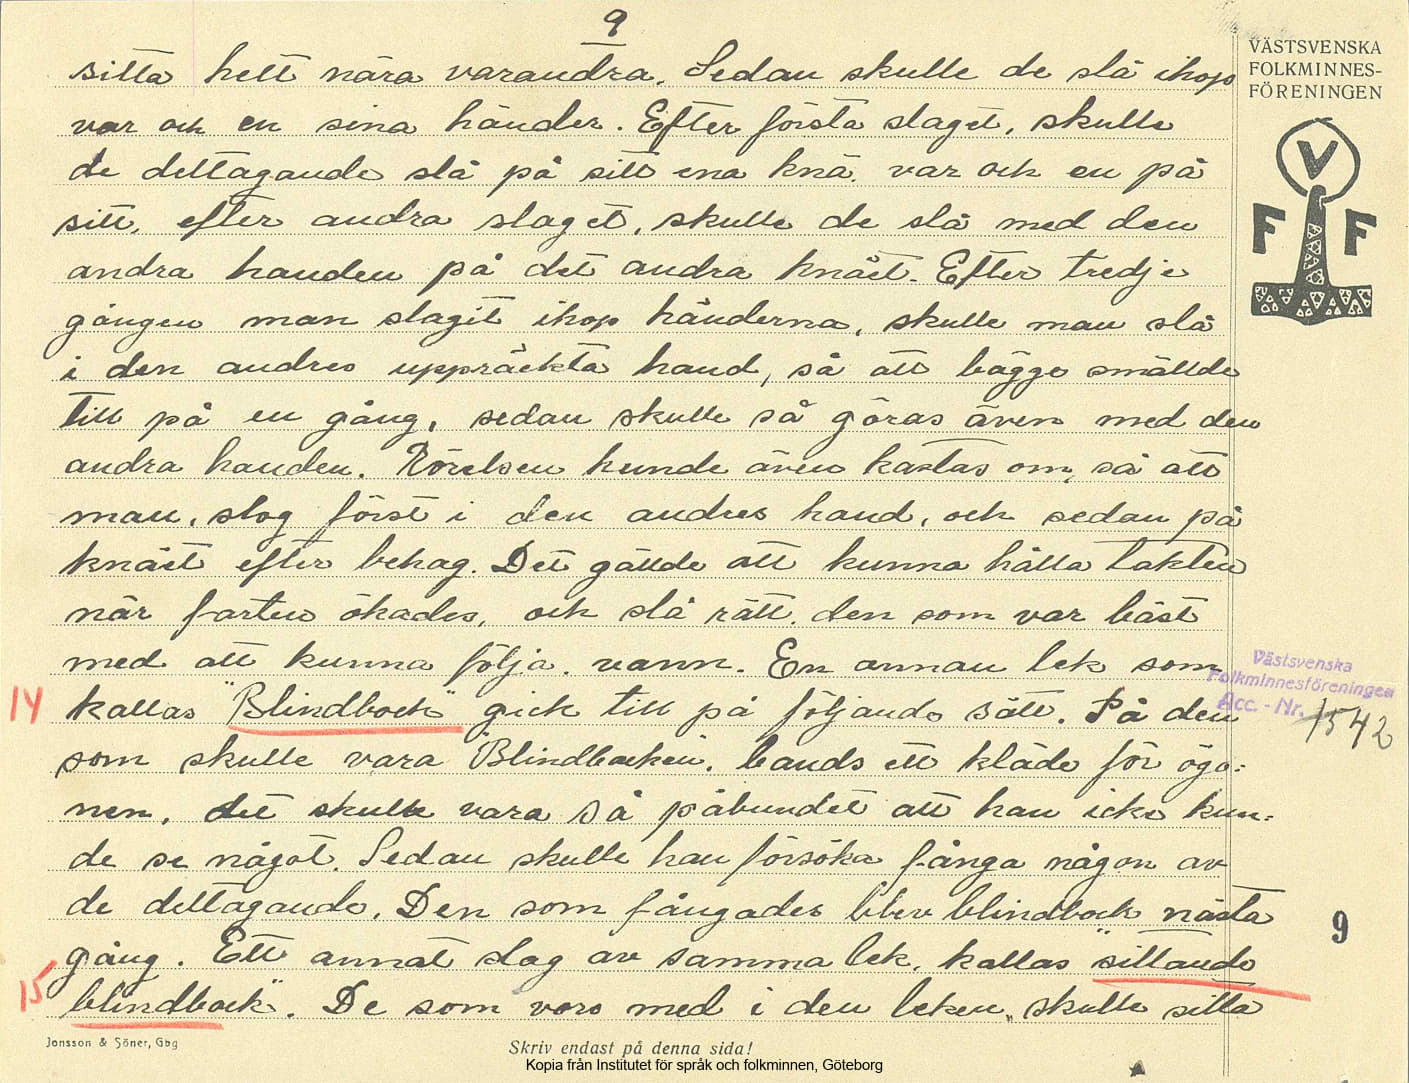 9
sitta helt nära varandra. Sedan skulle de slå ihop
var och en sina händer. Efter första slaget, skulle
de deltagande slå på sitt ena knä, var och en på
sitt, efter andra slaget, skulle de slå med den
andra handen på det andra knäet. Efter tredje
gången man slagit ihop händerna, skulle man slå
i den andres uppräckta hand, så att bägge smällde
till på en gång, sedan skulle så göras även med den
andra handen. Rörelsen kunde även kastas om, så att
man, slog först i den andres hand, och sedan på
knäet efter behag. Det gällde att kunna hålla takten
när farten ökades, och slå rätt, den som var bäst
med att kunna följa, vann. En annan lek som
14 kallas "Blindbock" gick till på följande sätt. På den
som skulle vara "Blindbocken", bands ett kläde för ögo=
nen, det skulle vara så påbundet att han icke kun=
de se något. Sedan skulle han försöka fånga någon av
de deltagande. Den som fångades blev blindbock nästa
gång. Ett annat slag av samma lek, kallas "sittande
15 blindbock". De som voro med i den leken, skulle sitta
VÄSTSVENSKA
FOLKMINNES-
FÖRENINGEN
V
F F
Västsvenska
Folkminnesföreningen
Acc. - Nr. 1542
9
Jonsson & Söner, Gbg
Skriv endast på denna sida!
Kopia från Institutet för språk och folkminnen, Göteborg